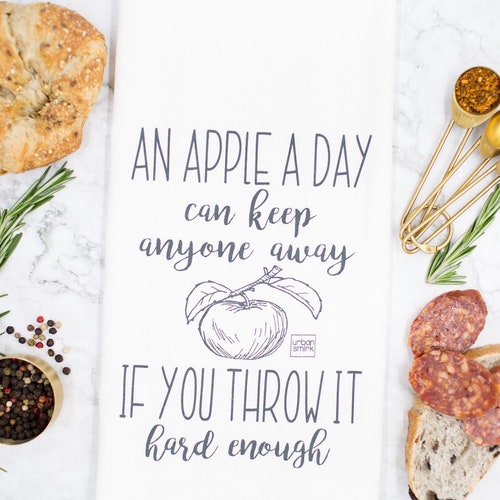 AN APPLE A DAY
can keep
anyone away
urban
smirk
IF YOU THROW IT
hard enough